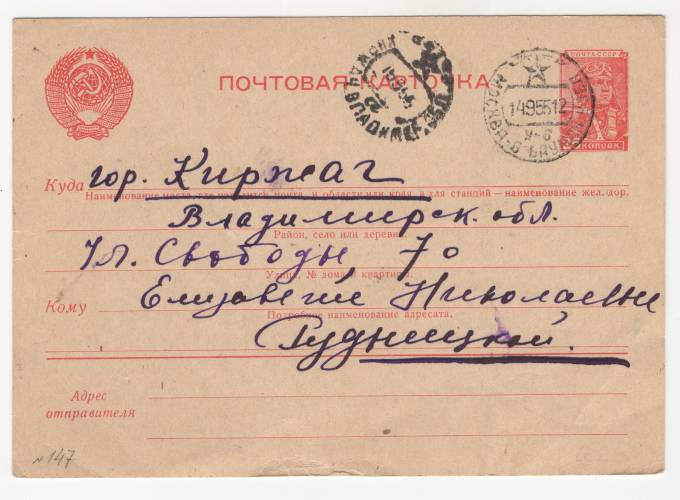 ПОЧТОВАЯ КАРТОЧКА
ПОЧТА СССР
КОПОЕК
МОСКВА-9
1495512
У-6
ВЛАДИМИР. ОБЛ.
Куда гор. Киржач
Наименование места, где находится почта, и области или края, а для станций — наименование жел. дор.
Владимирск. обл.
Район, село или деревня.
Ул. Свободы, 70
Улица, № дома и квартира.
Кому Елизавете Николаевне
Подробное наименование адресата.
Рудницкой.
Адрес
отправителя
№147